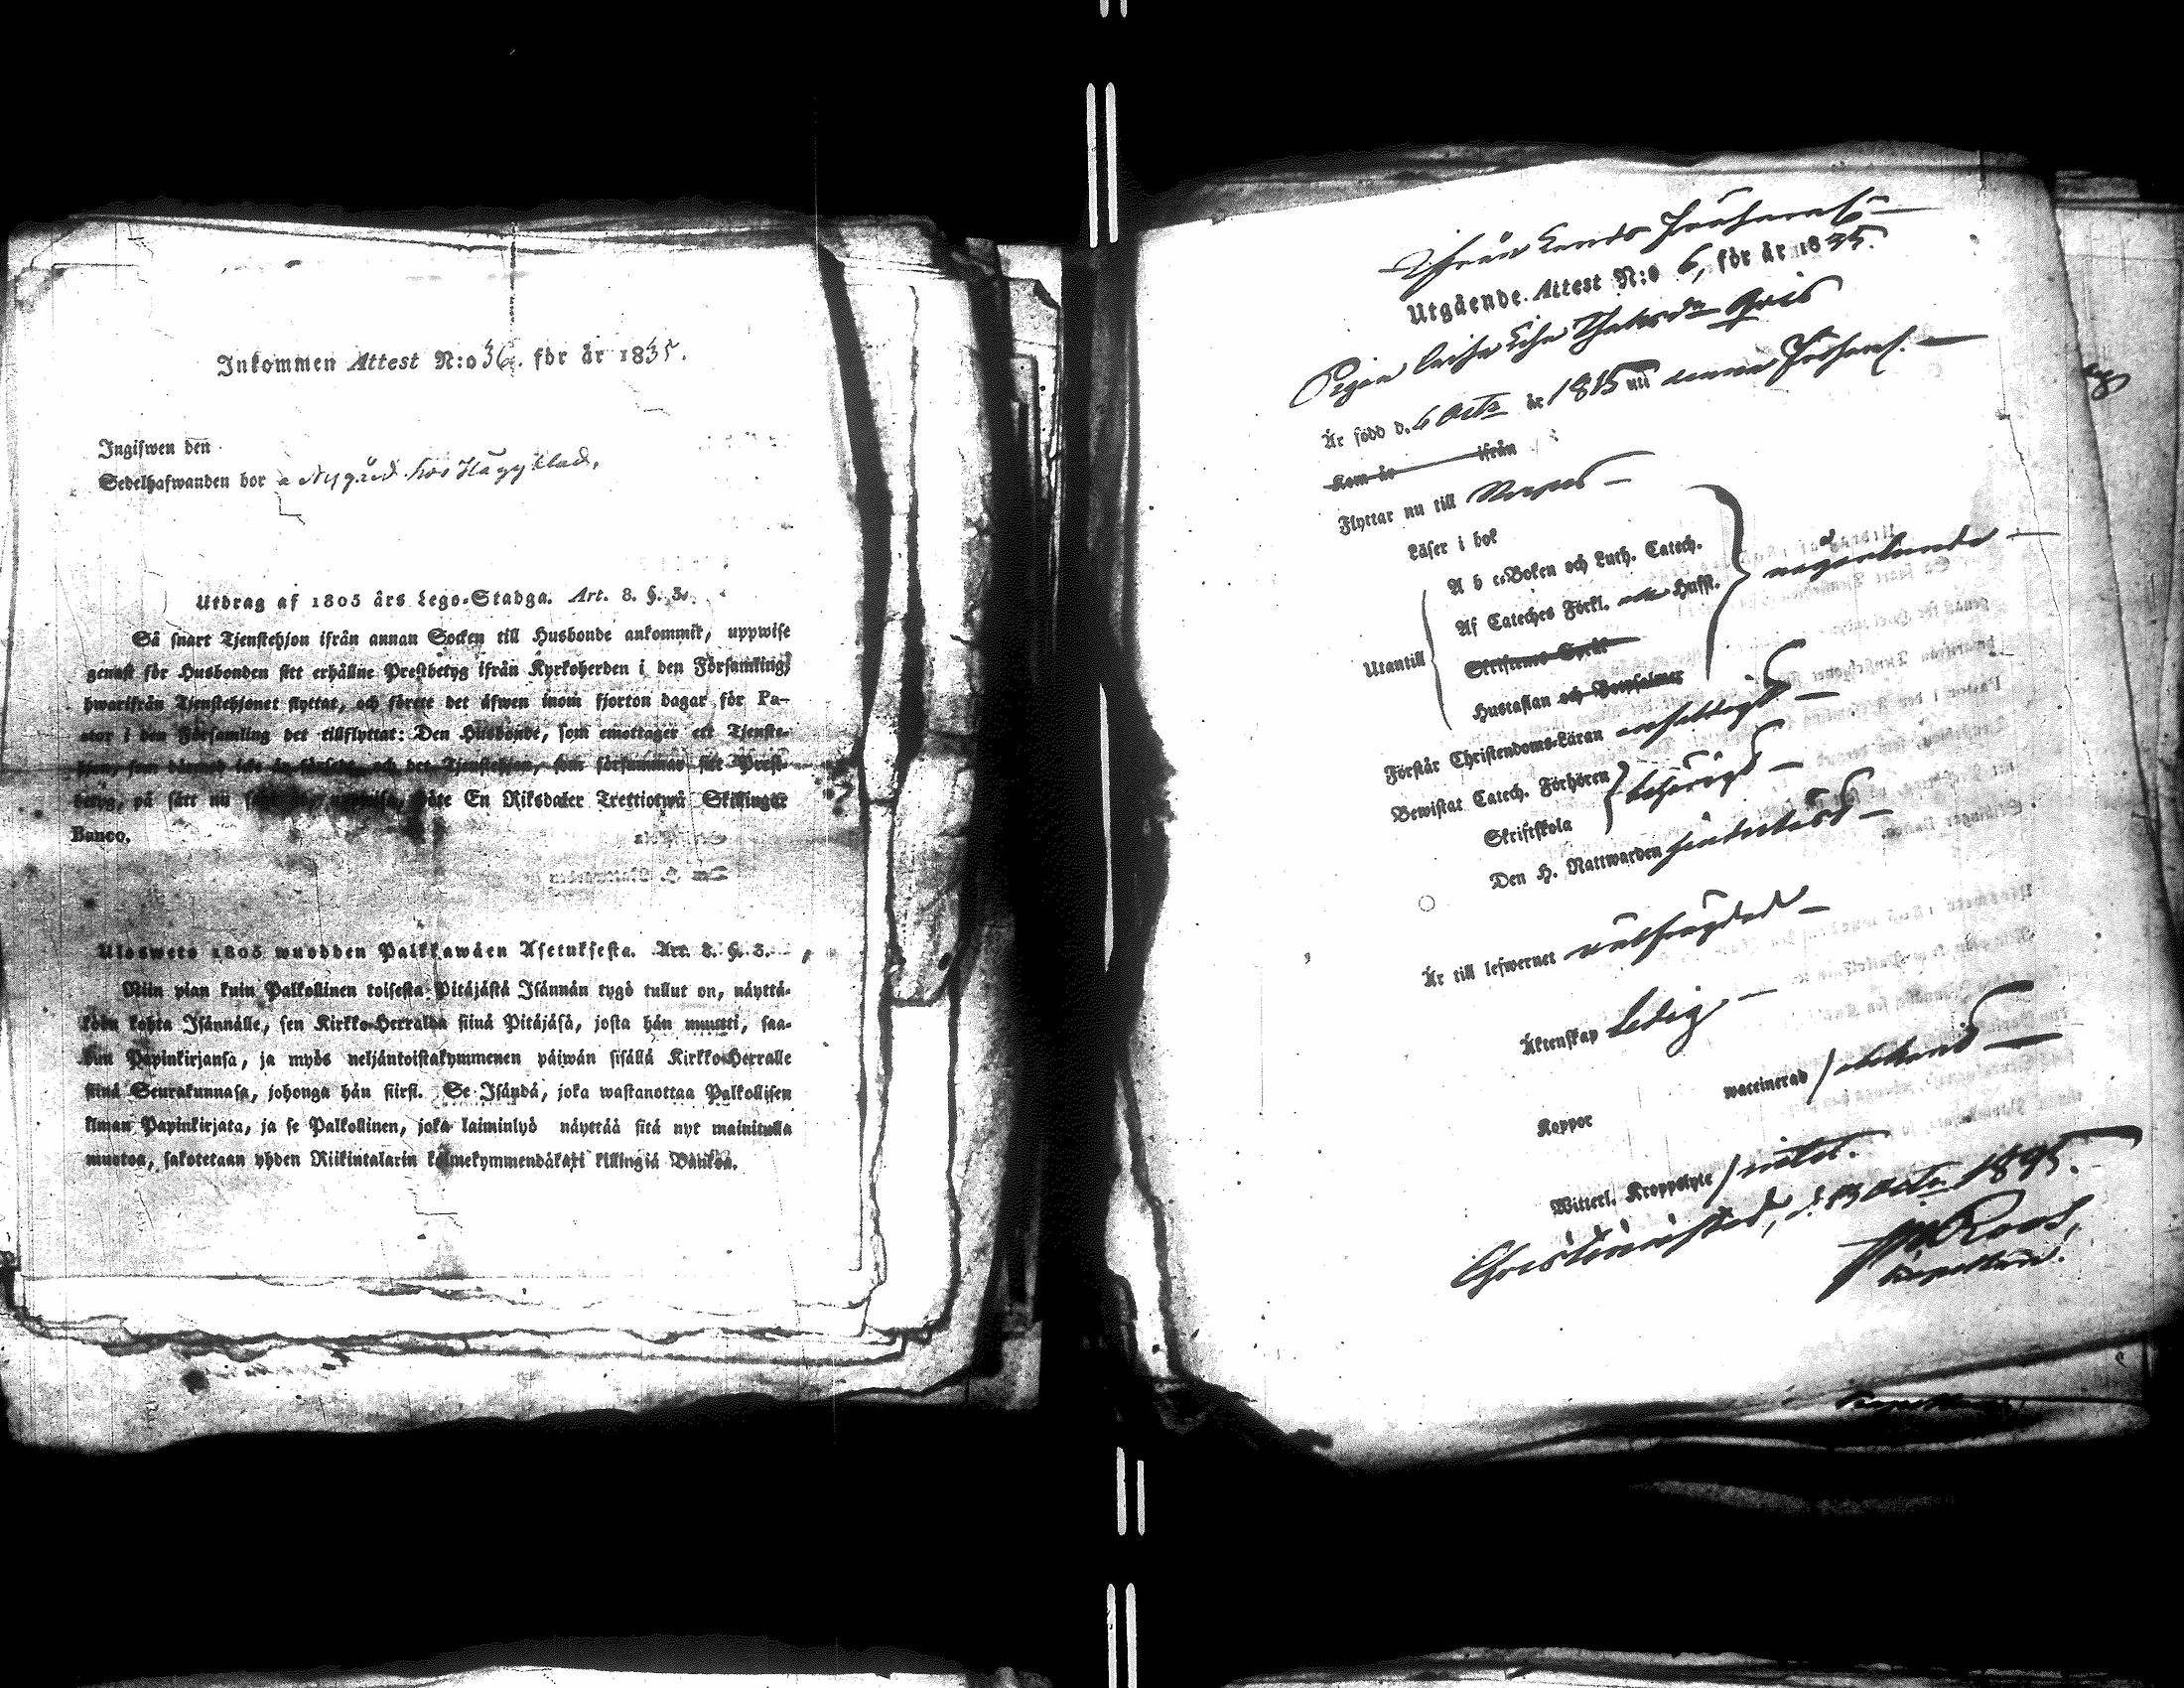 Inkommen Attest N:o 36. för år 1835.
Ingifwen den
Sedelhafwanden bor å Nygård hos Häggblad.
Utdrag af 1805 års Lego-Stadga. Art. 8. §. 3.
Så snart Tjenstehjon ifrån annan Socken till Husbonde ankommit, uppwise
genast för Husbonden sitt erhållne Prestbetyg ifrån Kyrkoherden i den Församling,
hwarifrån Tjenstehjonet flyttat, och förete det äfwen inom fjorton dagar för Pa-
stor i den Församling det tillflyttat: Den Husbonde, som emottager ett Tjenste-
hjon, som dermed icke är försedt, och det Tjenstehjon, som försummar sitt Prest-
betyg, på sätt nu sagt är, uppwisa, böte En Riksdaler Trettiotwå Skillingar
Banco.
Ulosweto 1805 wuodden Palkkawäen Asetuksesta. Art. 8. §. 3.
Niin pian kuin Palkollinen toisesta Pitäjästä Isännän tygö tullut on, näyttä-
köön kohta Isännälle, sen Kirkko-Herralda siinä Pitäjäsä, josta hän muutti, saa-
dun Papinkirjansa, ja myös neljäntoistakymmenen päiwän sisällä Kirkko-Herralle
siinä Seurakunnasa, johonga hän siirsi. Se Isändä, joka wastanottaa Palkollisen
ilman Papinkirjata, ja se Palkollinen, joka laiminlyö näyttää sitä nyt mainitulla
muotoa, sakotetaan yhden Riikintalarin kolmekymmendäkaxi killingiä Bankoa.
Ifrån Lands Församl.
Utgående Attest N:o 6, för år 1835.
Pigan Caisa Lisa
Är född d. 6 Octr år 1815 uti denna Församl.
Kom år ifrån
Flyttar nu till
Läser i bok
A b c-Boken och Luth. Catech.
Utantill
Af Cateches Förkl. Hufst.
Skriftenes Språk
Hustaflan och Botpsalmer
någorlunda
Förstår Christendoms-Läran enfaldigt
Bewistat Catech. Förhören
Skriftskola
behörigt
Den H. Nattwarden
Är till lefwernet välfrägdad
Äktenskap Ledig
Koppor waccinerad
Witterl. Kroppslyte intet.
Christinæstad, d. 13 Octr 1835.
Roos,
Capellan.